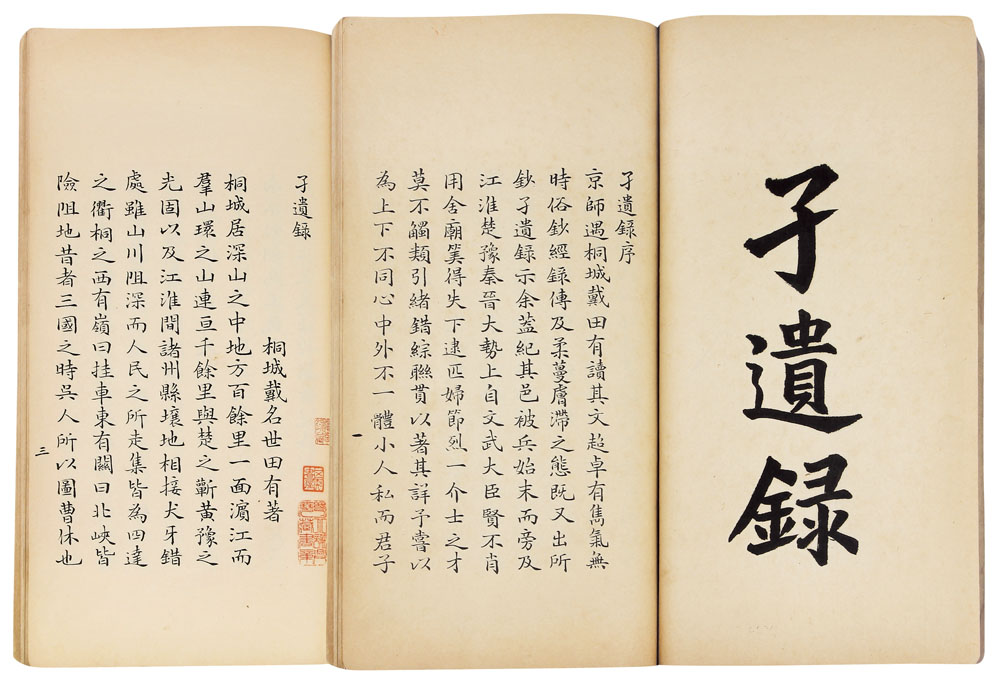 孑遺録
孑遺録序
京師遇桐城戴田有讀其文超卓有雋氣無
時俗鈔經録傳及柔蔓膚滯之態既又出所
鈔孑遺録示余蓋紀其邑被兵始末而旁及
江淮楚豫秦晉大勢上自文武大臣賢不肖
用舍廟筭得失下逮匹婦節烈一介士之才
莫不觸類引緒錯綜聯貫以著其詳予嘗以
為上下不同心中外不一體小人私而君子
一
孑遺録
桐城戴名世田有著
桐城居深山之中地方百餘里一面濵江而
羣山環之山連亘千餘里與楚之蘄黄豫之
光固以及江淮間諸州縣壤地相接犬牙錯
處雖山川阻深而人民之所走集皆為四達
之衢桐之西有嶺曰挂車東有關曰北峽皆
險阻地昔者三國之時吳人所以圖曹休也
三